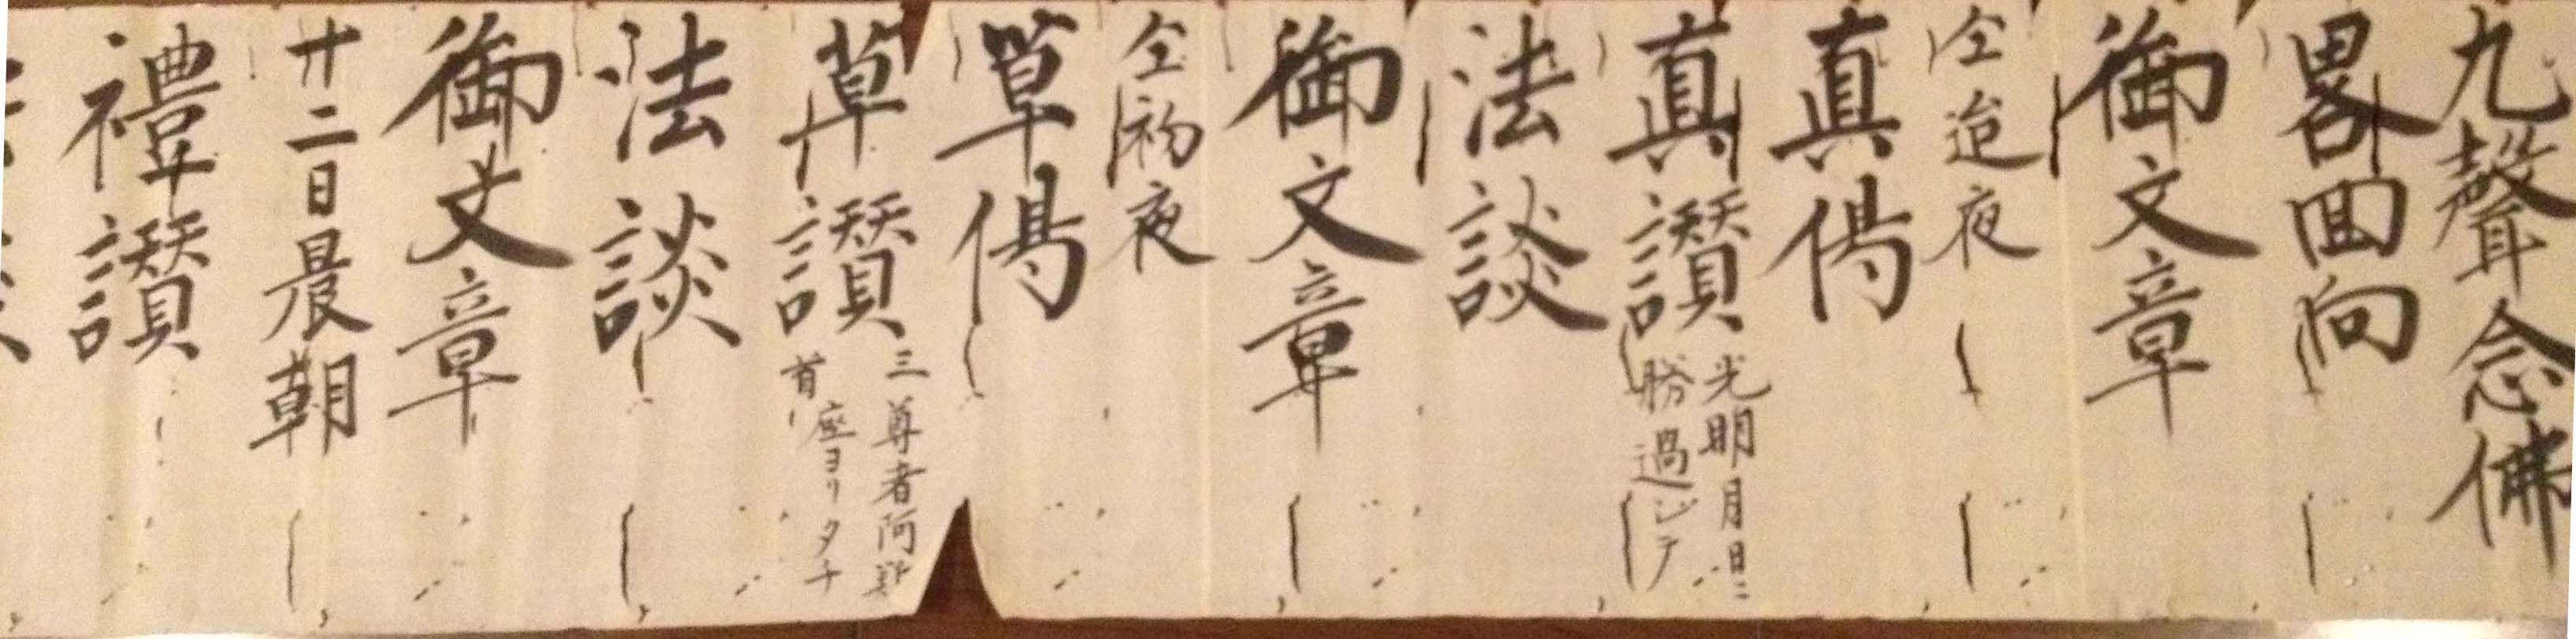 九聲念佛
畧回向
御文章
仝迨夜
真偈
真讃
光明月日ニ
勝過シテ
法談
御文章
仝初夜
草偈
草讃
三尊者阿難
座ヨリタチ
首
法談
御文章
廿二日晨朝
禮讃